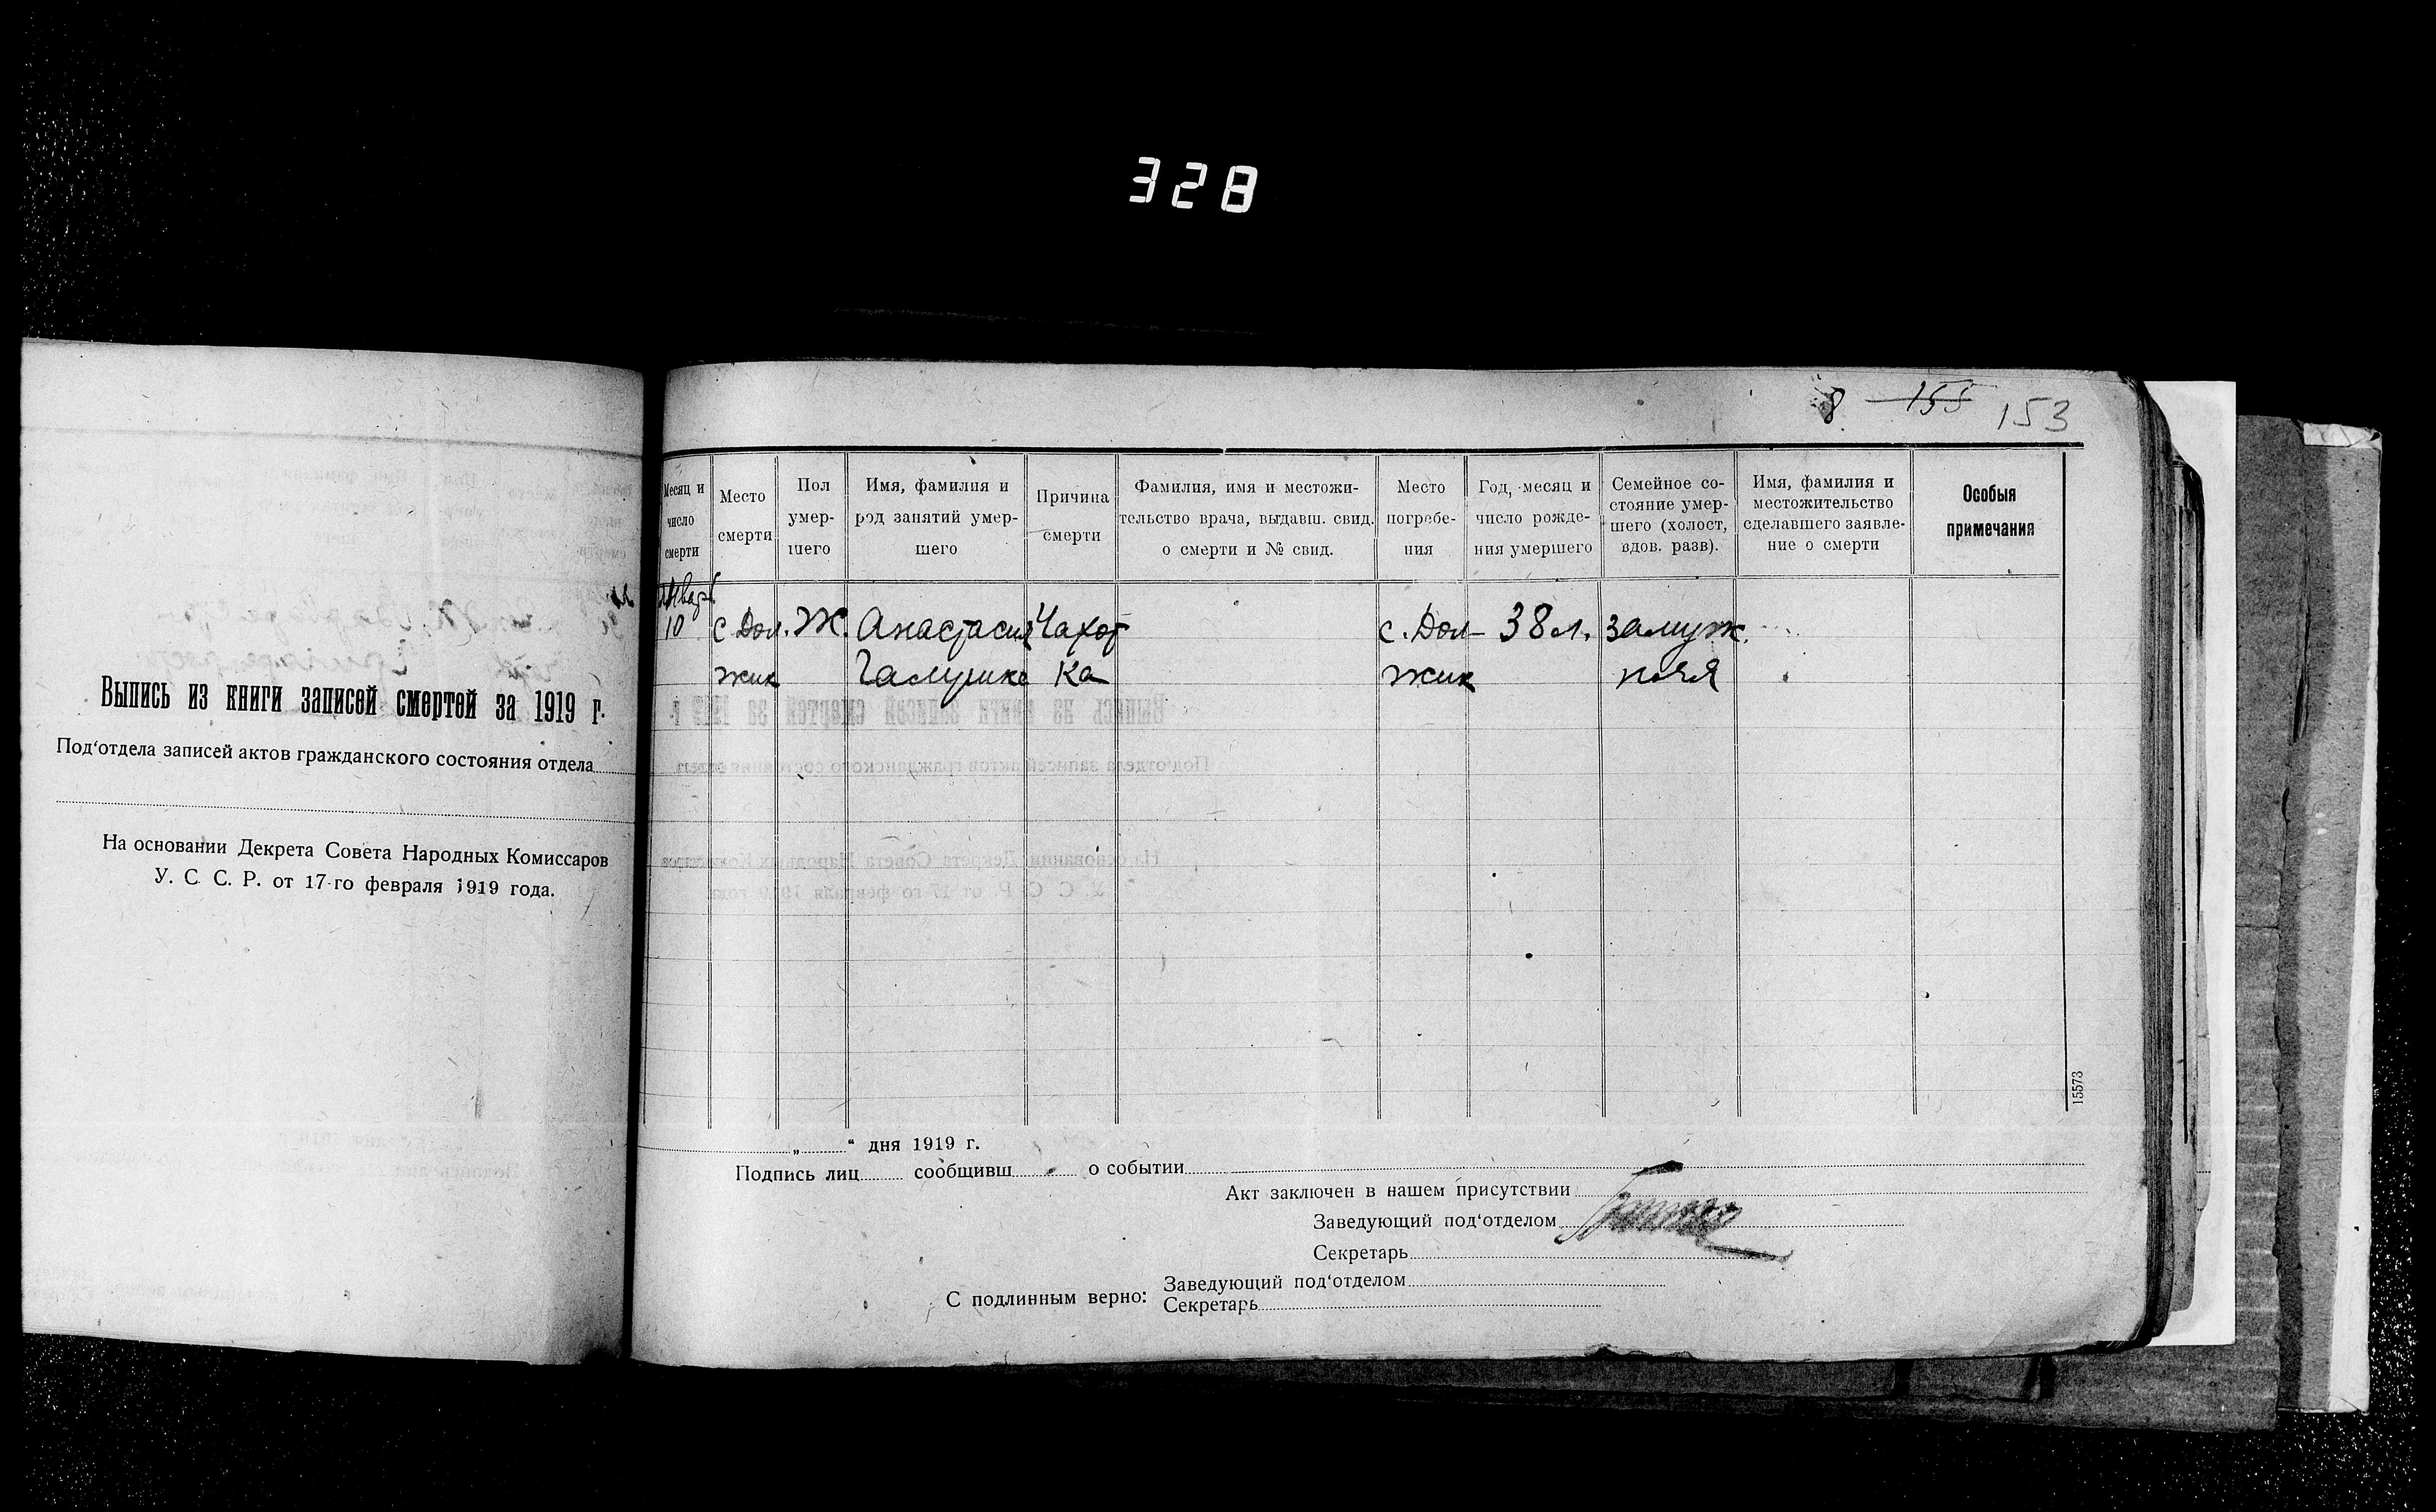 328
8 155 153
Выпись из книги записей смертей за 1919 г.
Под'отдела записей актов гражданского состояния отдела
На основании Декрета Совета Народных Комиссаров
У. С. С. Р. от 17-го февраля 1919 года.
Месяц и число смерти
Место смерти
Пол умер-
шего
Имя, фамилия и
род занятий умер-
шего
Причина
смерти
Фамилия, имя и местожи-
тельство врача, выдавш. свид.
о смерти и № свид.
Место
погребе-
ния
Год, месяц и
число рожде-
ния умершего
Семейное со-
стояние умер-
шего (холост,
вдов. разв).
Имя, фамилия и
местожительство
сделавшего заявле-
ние о смерти
Особыя
примечания
Январь
10 с. Дол. Ж. Анастасия Чахот с. Дол- 38 л. замуж.
жик Галушка ка жик няя
15573
„ “ дня 1919 г.
Подпись лиц сообщивш о событии
Акт заключен в нашем присутствии
Заведующий под'отделом
Секретарь
С подлинным верно: Заведующий под'отделом
Секретарь